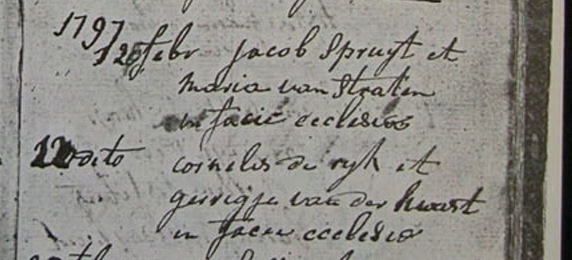 1797
12 febr jacob Spruyt et
maria van Straten
in facie ecclesiae
12 dito cornelis de ryk et
gerrigje van der hwart
in facie ecclesiae